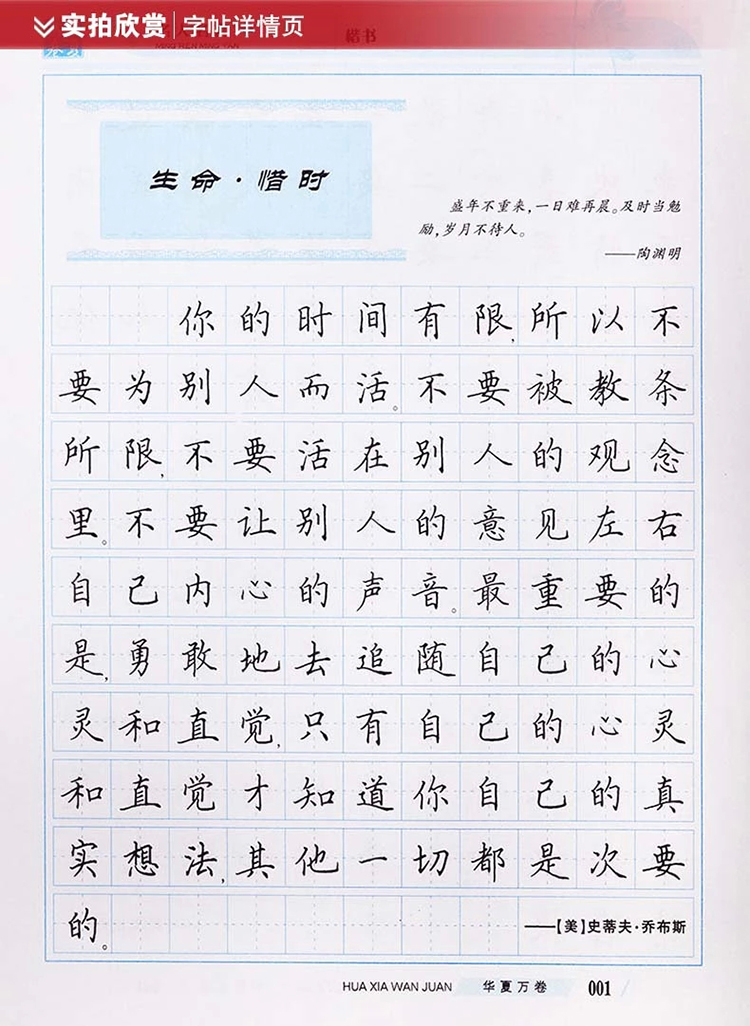 实拍欣赏 字帖详情页
楷书
生命·惜时
盛年不重来,一日难再晨。及时当勉
励,岁月不待人。
——陶渊明
你的时间有限,所以不
要为别人而活。不要被教条
所限,不要活在别人的观念
里。不要让别人的意见左右
自己内心的声音。最重要的
是,勇敢地去追随自己的心
灵和直觉,只有自己的心灵
和直觉才知道你自己的真
实想法,其他一切都是次要
的。
——【美】史蒂夫·乔布斯
HUA XIA WAN JUAN 华夏万卷 001